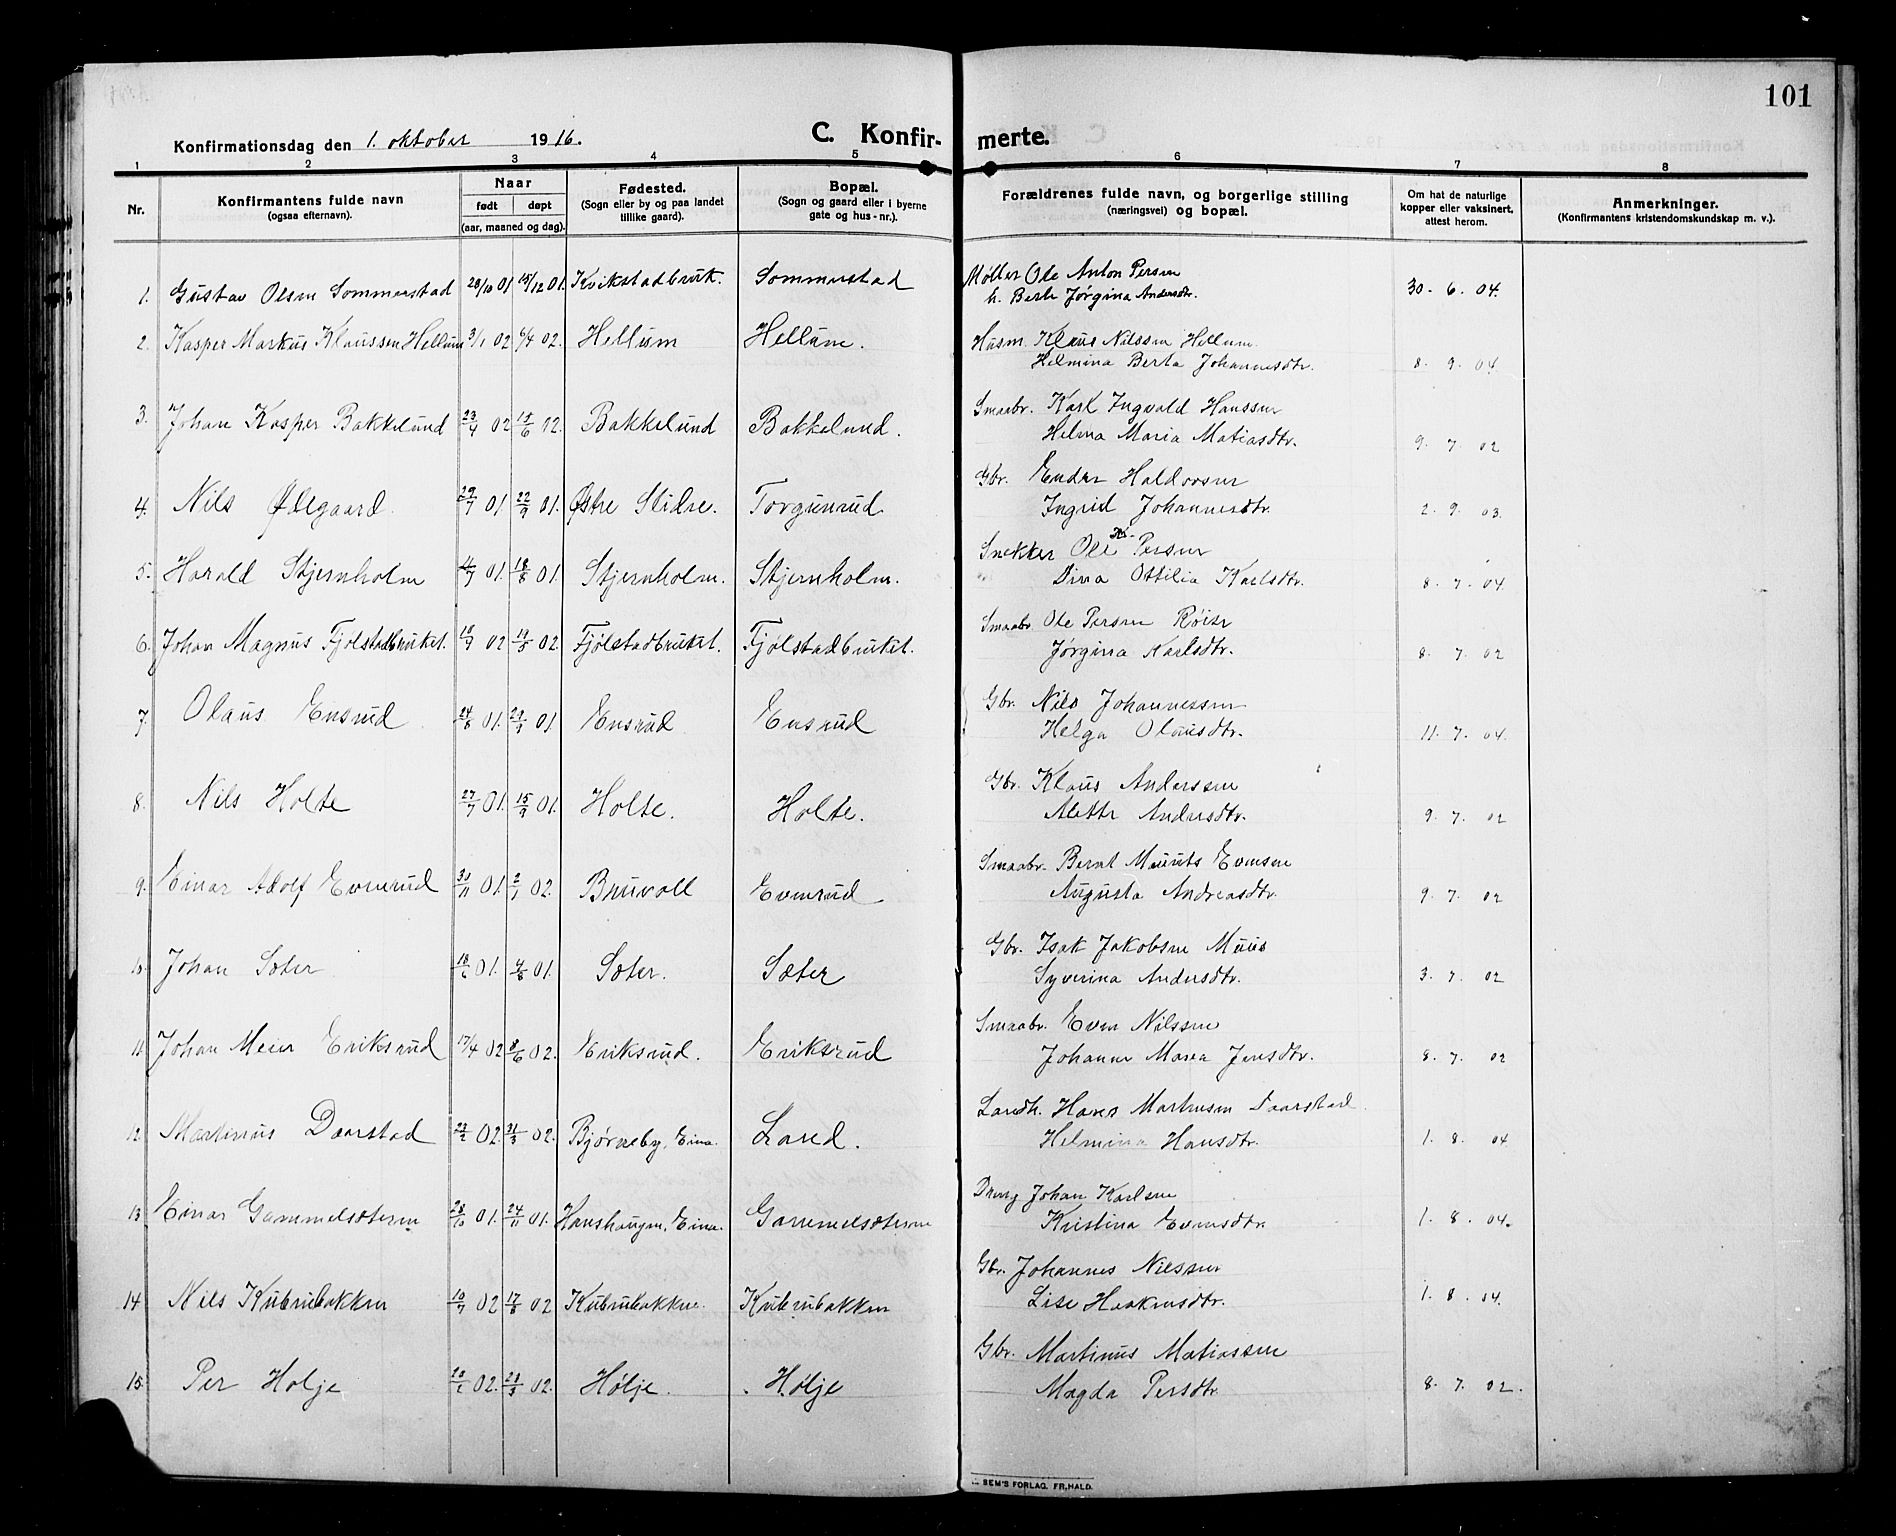 101
Konfirmationsdag den 1. oktober 1916.
C. Konfir- merte.
1 2 3 4 5 6 7 8
Nr.
Konfirmantens fulde navn
(ogsaa efternavn).
Naar
født døpt
(aar, maaned og dag).
Fødested.
(Sogn eller by og paa landet
tillike gaard).
Bopæl.
(Sogn og gaard eller i byerne
gate og hus-nr.).
Forældrenes fulde navn, og borgerlige stilling
(næringsvei) og bopæl.
Om hat de naturlige
kopper eller vaksinert,
attest herom.
Anmerkninger.
(Konfirmantens kristendomskundskap m. v.).
1. Gustav Olsen Sommerstad 28/10 01 15/12 01. Kvikstadbruk. Sommerstad Møller Ole Anton Persen
h. Berte Jørgina Andersdtr. 30. 6. 04.
2. Kasper Markus Klaussen Hellum 3/1 02 6/4 02. Hellum Hellum. Husm. Klaus Nilssen Hellum
Helmina Berta Johannesdtr. 8. 9. 04.
3. Johan Kasper Bakkelund 23/4 02 15/6 02. Bakkelund Bakkelund. Smaabr. Karl Ingvald Hanssen
Helma Maria Matiasdtr. 9. 7. 02
4. Nils Ødegaard 29/7 01 22/9 01. Østre Slidre. Torgunrud Gbr. Endre Haldorsen
Ingrid Johannesdtr. 2. 9. 03.
5. Harald Stjernholm 01. 18/8 01. Stjernholm. Stjernholm. Snekker Ole Persen
Dina Ottilia Karlsdtr. 8. 7. 04.
6. Johan Magnus Fjølstadbruket. 02 19/5 02. Fjølstadbruket. Fjølstadbruket. Smaabr. Ole Persen Røise
Jørgina Karlsdtr. 8. 7. 02
7. Olaus Ensrud 24/8 01. 29/9 01. Ensrud Ensrud Gbr. Nils Johannessen
Helga Olausdtr. 11. 7. 04.
8. Nils Holte 27/7 01. 15/9 01. Holte. Holte. Gbr. Klaus Anderssen
Alette Andersdtr. 9. 7. 02
9. Einar Adolf Evenrud 30/11 01. 2/1 02. Bruvoll Evenrud Smaabr. Bernt Mauuts Evensen
Augusta Andreasdtr. 9. 7. 02
10. Johan Sæter 18/6 01. 4/8 01. Sæter. Sæter Gbr. Isak Jakobsen Muus
Syverina Andersdtr. 3. 7. 02
11. Johan Meier Eriksrud 17/4 02 8/6 02. Eriksrud. Eriksrud Smaabr. Even Nilssen
Johanne Marea Jensdtr. 8. 7. 02
12. Martinus Daarstad 23/2 02. 31/3 02. Bjørneby, Eina. Land. Landh. Hans Martinsen Daarstad
Helmina Hansdtr. 1. 8. 04
13. Einar Gammelsæteren 28/10 01. 24/11 01. Hanshaugen, Eina. Gammelsæteren Johan Karlsen
Kristina Evensdtr. 1. 8. 04.
14. Nils Kubrubakken 02 17/8 02 Kubrubakken. Kubrubakken Gbr. Johannes Nilssen
Lise Haakensdtr. 1. 8. 04.
15. Per Holje 02. 23/3 02. Hølje. Hølje Gbr. Martinus Matiassen
Magda Persdtr. 8. 7. 02.
SEM'S FORLAG. FR,HALD.